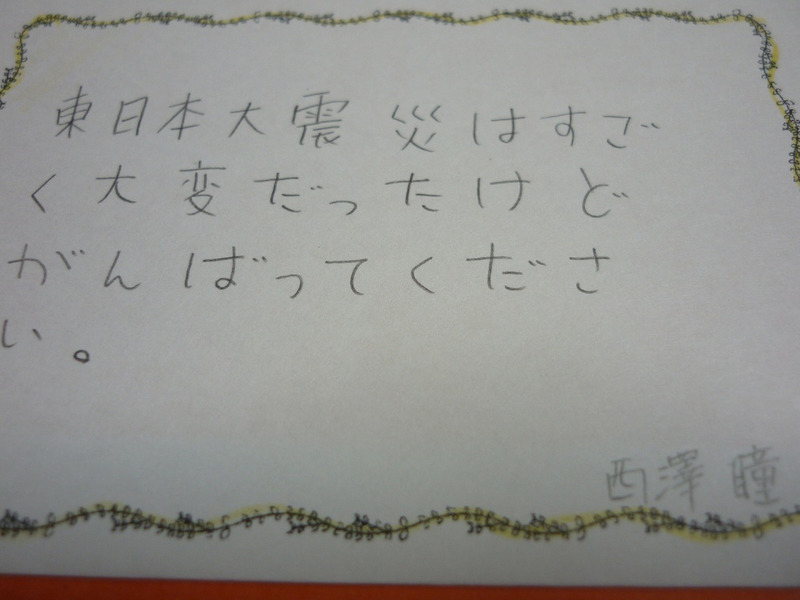 東日本大震災はすご
く大変だったけど
がんばってくださ
い。
西澤 瞳